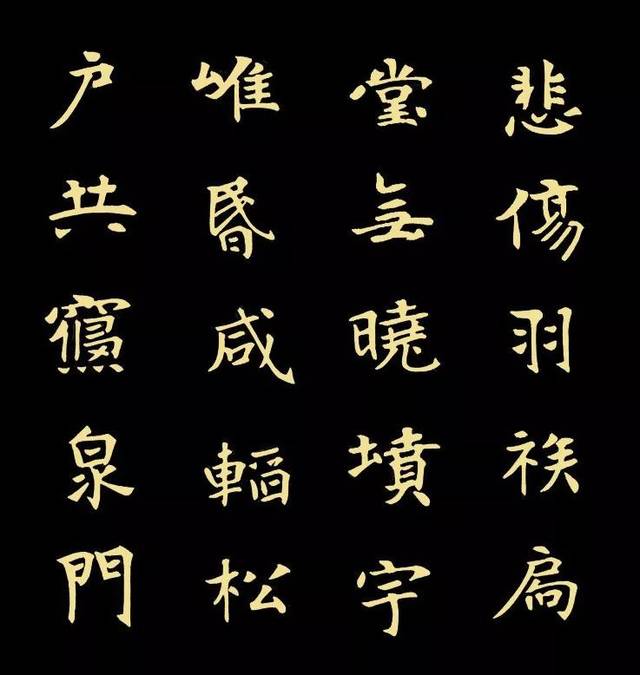 悲傷羽族扃
堂無曉墳宇
唯昏咸松
户共泉門